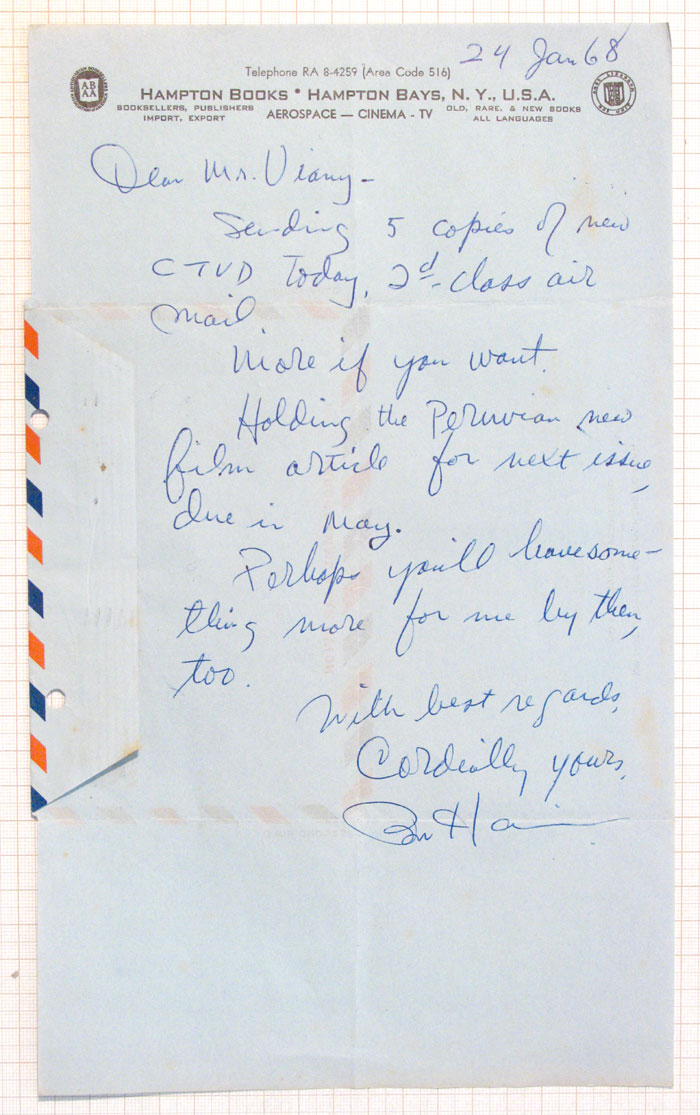 24 Jan 68
Telephone RA 8-4259 (Area Code 516)
ABAA
HAMPTON BOOKS * HAMPTON BAYS, N. Y., U.S.A.
BOOKSELLERS, PUBLISHERS
IMPORT, EXPORT
AEROSPACE — CINEMA - TV
OLD, RARE, & NEW BOOKS
ALL LANGUAGES
Dear Mr. Viany—
Sending 5 copies of new
CTVD Today, 2d-class air
mail.
More if you want.
Holding the Peruvian new
film article for next issue,
due in May.
Perhaps you'll have some-
thing more for me by then,
too.
With best regards,
Cordially yours,